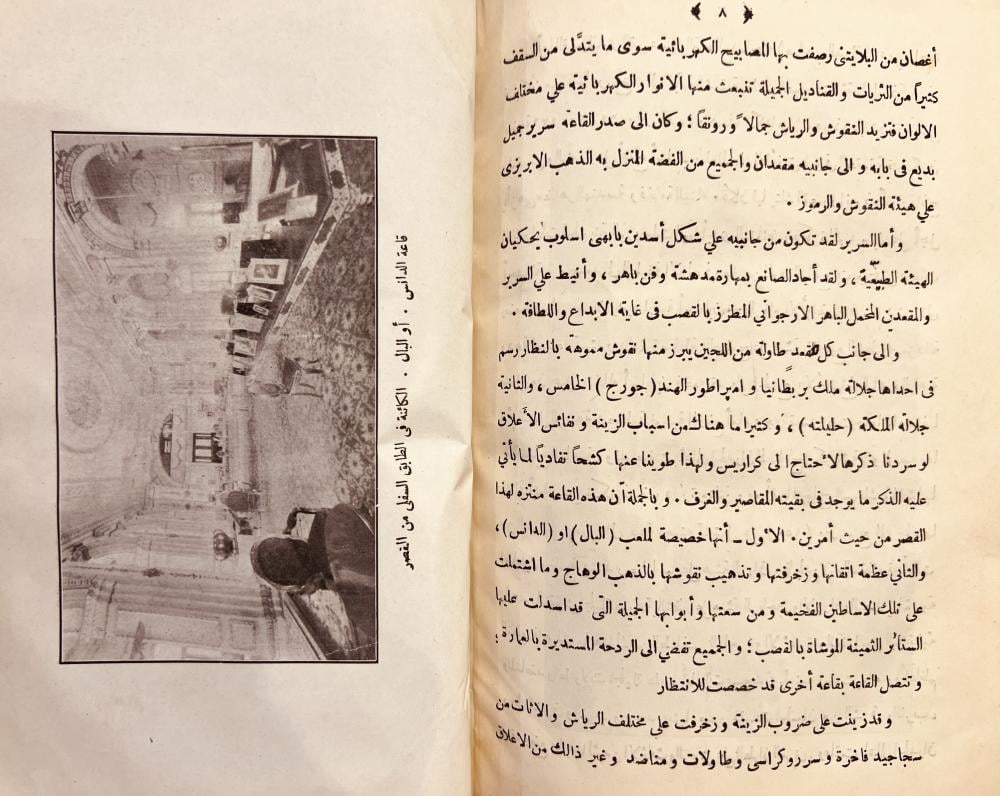 ٨
أغصان من البلايتنى رصفت بها المصابيح الكهربائية سوى ما يتدلى من السقف
كثيراً من الثريات والقناديل الجميلة تنبعث منها الانوار الكهربائية علي مختلف
الالوان فتزيد النقوش والرياش جمالاً ورونقاً؛ وكان الى صدر القاعة سرير جميل
بديع في بابه والى جانبيه مقعدان والجميع من الفضة المنزل به الذهب الابريزى
علي هيئة النقوش والرموز .
وأما السرير لقد تكون من جانبيه علي شكل أسدين بابهى اسلوب يحكيان
الهيئة الطبيعية ، ولقد أجاد الصانع بمهارة مدهشة وفن باهر ، وأنيط علي السرير
والمقعدين المخمل الباهر الارجواني المطرز بالقصب في غاية الابداع واللطافة .
والى جانب كل مقعد طاولة من اللجين يبرز منها نقوش مموهة بالنظار رسم
في احداها جلالة ملك بريطانيا و امبراطور الهند (جورج) الخامس ، والثانية
جلالة الملكة (حليلته) ، وكثيرا ما هناك من اسباب الزينة ونفائس الأعلاق
لو سردنا ذكرها لاحتاج الى كراريس ولهذا طوينا عنها كشحاً تفادياً لما يأتي
عليه الذكر ما يوجد في بقيته المقاصير والغرف . وبالجملة أن هذه القاعة منتزه لهذا
القصر من حيث أمرين . الأول ــ أنها خصيصة لملعب (البال) او (الدانس) ،
والثاني عظمة اتقانها وزخرفتها وتذهيب نقوشها بالذهب الوهاج وما اشتملت
على تلك الاساطين الفخيمة ومن سعتها وأبوابها الجميلة التى قد اسدلت عليها
الستائر الثمينة الموشاة بالقصب ؛ والجميع تفضي الى الردحة المستديرة بالعمارة ؛
وتتصل القاعة بقاعة أخرى قد خصصت للانتظار
وقد زينت على ضروب الزينة وزخرفت على مختلف الرياش والاثاث من
سجاجيد فاخرة وسرر وكراسى وطاولات ومناضد وغير ذالك من الاعلاق
قاعة الدانس . أو البال . الكائنة في الطابق السفلى من القصر